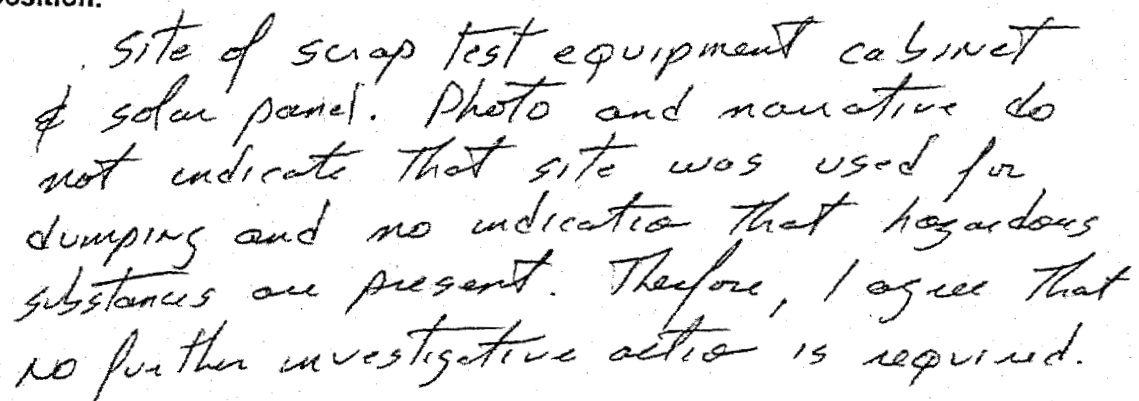 osition:
Site of scrap test equipment cabinet
& solar panel. Photo and narrative do
not indicate that site was used for
dumping and no indication that hazardous
substances are present. Therefore, I agree that
no further investigative action is required.